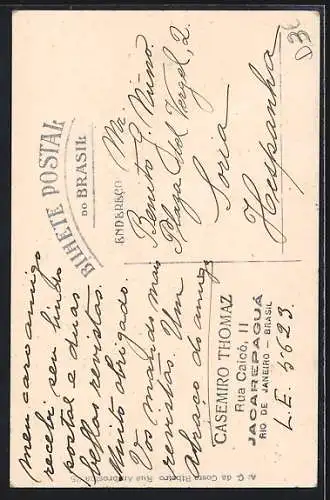 BILHETE POSTAL
DO BRASIL
meu caro amigo
recebi seu lindo
postal e duas
bellas revistas.
Muito obrigado.
Vos mando mais
revistas. Um
abraço do amigo
CASEMIRO THOMAZ
Rua Caicó, 11
JACAREPAGUÁ
RIO DE JANEIRO – BRASIL
L.E. 5623.
ENDEREÇO
Benito G. Nuño.
Plaza del Vergel, 2.
Soria
Hespanha
da Costa Ribeiro Rua